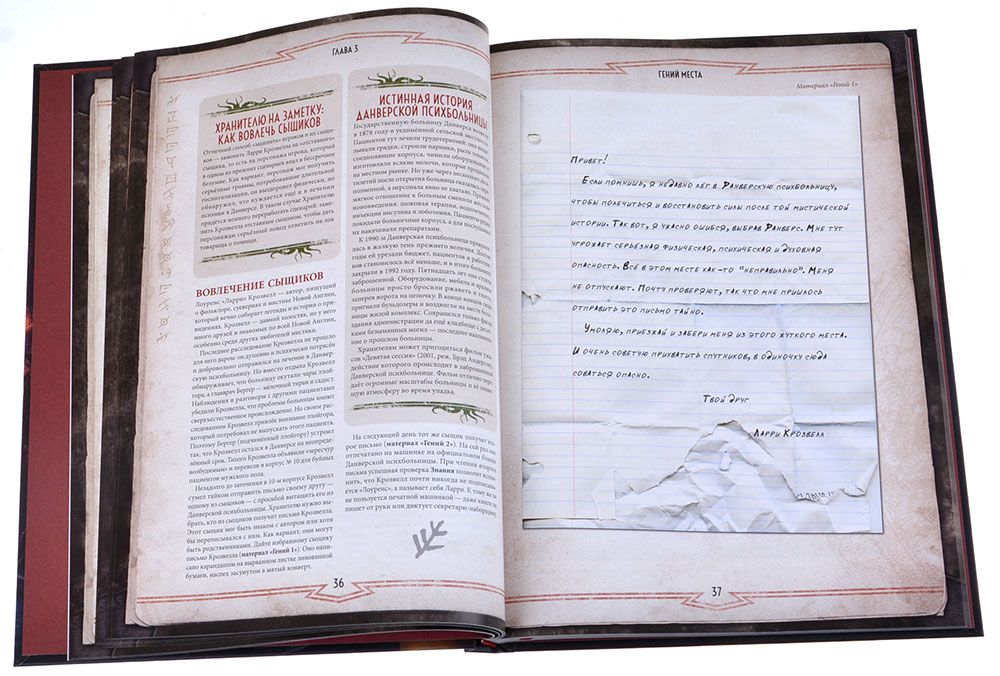 ГЛАВА 3
ХРАНИТЕЛЮ НА ЗАМЕТКУ:
КАК ВОВЛЕЧЬ СЫЩИКОВ
Отличный способ «зацепить» игроков и их сыщи-
ков — заменить Ларри Крозвелла на «отставного»
сыщика, то есть на персонажа игрока, который
в одном из прежних сценариев впал в бессрочное
безумие. Как вариант, персонаж мог получить
серьёзные травмы, потребовавшие длительной
госпитализации, он выздоровел физически, но
обнаружил, что нуждается ещё и в лечении
психики в Данверсе. В таком случае Хранителю
придётся немного переработать сценарий: заме-
нить Крозвелла отставным сыщиком, чтобы дать
персонажам серьёзный повод ответить на зов
товарища о помощи.
ВОВЛЕЧЕНИЕ СЫЩИКОВ
Лоуренс «Ларри» Крозвелл — автор, пишущий
о фольклоре, суевериях и мистике Новой Англии,
который вечно собирает легенды и истории о при-
видениях. Крозвелл — давний холостяк, но у него
много друзей и знакомых по всей Новой Англии,
особенно среди других любителей мистики.
Последнее расследование Крозвелла не прошло
для него даром: он душевно и психически потрясён
и добровольно отправился на лечение в Данвер-
скую психбольницу. Но вместо отдыха Крозвелл
обнаруживает, что больницу окутали чары ллой-
гора, а главврач Бергер — мелочный тиран и садист.
Наблюдения и разговоры с другими пациентами
убедили Крозвелла, что проблемы больницы имеют
сверхъестественное происхождение. Но своим рас-
следованием Крозвелл привлёк внимание ллойгора,
который потребовал не выпускать этого пациента.
Поэтому Бергер (подчинённый ллойгору) устроил
так, что Крозвелл остался в Данверсе на неопреде-
лённый срок. Тихого Крозвелла объявили «чересчур
возбудимым» и перевели в корпус № 10 для буйных
пациентов мужского пола.
Незадолго до заточения в 10-м корпусе Крозвелл
сумел тайком отправить письмо своему другу —
одному из сыщиков — с просьбой вытащить его из
Данверской психбольницы. Хранителю нужно вы-
брать, кто из сыщиков получит письмо Крозвелла.
Этот сыщик мог быть знаком с автором или хотя
бы переписывался с ним. Как вариант, они могут
быть родственниками. Дайте избранному сыщику
письмо Крозвелла (материал «Гений 1»). Оно напи-
сано карандашом на вырванном листке линованной
бумаги, наспех засунутом в мятый конверт.
ИСТИННАЯ ИСТОРИЯ
ДАНВЕРСКОЙ ПСИХБОЛЬНИЦЫ
Государственную больницу Данверса
в 1878 году в уединённой сельской местно
Пациентов тут лечили трудотерапией: они
дывали грядки, строили парники, рыли
соединяющие корпуса, чинили оборудован
изготовляли всякие мелочи, которые прод
на местном рынке. Но уже через несколько
тилетий после открытия больница оказалась пере-
полненной, а персонала явно не хватало. Прежнее
мягкое отношение к больным сменили
нововведения: шоковая терапия,
инъекции инсулина и лоботомия. Пациенты
покидали больничные корпуса, а для послушан
их накачивали препаратами.
К 1990-м Данверская психбольница преврати-
лась в жалкую тень прежнего величия. Долгие
годы ей урезали бюджет, пациентов и работни-
ков становилось всё меньше, и в итоге больницу
закрыли в 1992 году. Пятнадцать лет она стояла
заброшенной. Оборудование, мебель и архивы
больницы просто бросили ржаветь и гнить,
заперев ворота на цепочку. В конце концов сюда
пригнали бульдозеры и воздвигли на месте боль-
ницы жилой комплекс. Сохранился только фасад
здания администрации да ещё кладбище с десятк
ами безымянных могил — последнее напомина
ние о прошлом больницы.
Хранителям может пригодиться фильм ужа-
сов «Девятая сессия» (2001, реж. Брэд Андерсон),
действие которого происходит в заброшенной
Данверской психбольнице. Фильм отлично пере-
даёт огромные масштабы больницы и её зловещ
ую атмосферу во время упадка.
На следующий день тот же сыщик получит вто-
рое письмо (материал «Гений 2»). На сей раз оно
отпечатано на машинке на официальном бланке
Данверской психбольницы. При чтении второго
письма успешная проверка Знания позволит вспом-
нить, что Крозвелл почти никогда не подписывае
тся «Лоуренс», а называет себя Ларри. К тому же он
не пользуется печатной машинкой — даже книги он
пишет от руки или диктует секретарю-наборщику.
36
ГЕНИЙ МЕСТА
Материал «Гений 1»
Привет!
Если помнишь, я недавно лёг в Данверскую психбольницу,
чтобы полечиться и восстановить силы после той мистической
истории. Так вот, я ужасно ошибся, выбрав Данверс. Мне тут
угрожает серьёзная физическая, психическая и духовная
опасность. Всё в этом месте как-то "неправильно". Меня
не отпускают. Почту проверяют, так что мне пришлось
отправить это письмо тайно.
Умоляю, приезжай и забери меня из этого жуткого места.
И очень советую прихватить спутников, в одиночку сюда
соваться опасно.
Твой друг
Ларри Крозвелл
37